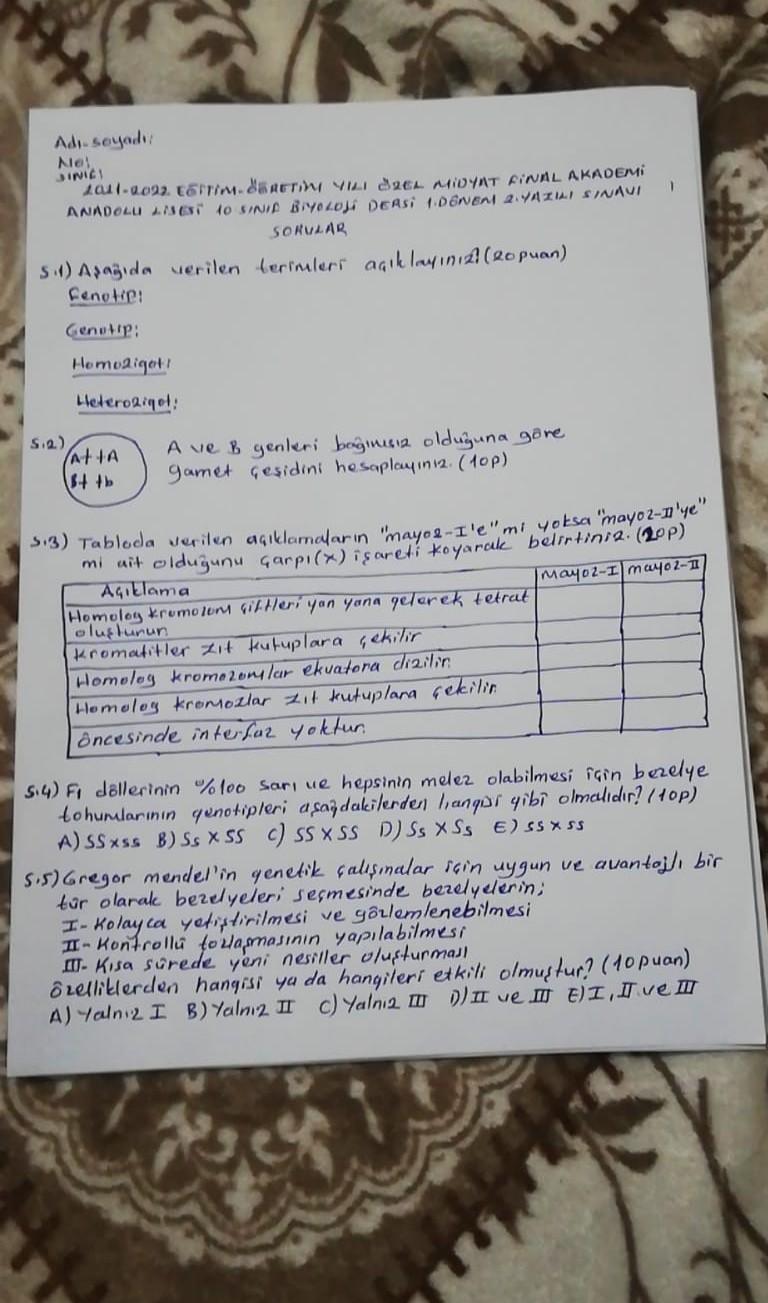 Adı-soyadı:
No:
SINIFI
2021-2022 EĞİTİM-ÖĞRETİM YILI ÖZEL MİDYAT FİNAL AKADEMİ
ANADOLU LİSESİ 10 SINIF BİYOLOJİ DERSİ 1.DÖNEM 2.YAZILI SINAVI
SORULAR
S.1) Aşağıda verilen terimleri açıklayınız? (20puan)
Fenotip:
Genotip:
Homozigot:
Heterozigot:
S.2) A ve B genleri bağımsız olduğuna göre
A++A
B++b
gamet çeşidini hesaplayınız. (10p)
S.3) Tabloda verilen açıklamaların "mayoz-I'e" mi yoksa "mayoz-II'ye"
mi ait olduğunu çarpı(x) işareti koyarak belirtiniz. (20p)
Açıklama mayoz-I mayoz-II
Homolog kromozom çiftleri yan yana gelerek tetrat
oluşturur.
Kromatitler zıt kutuplara çekilir
Homolog kromozomlar ekvatora dizilir.
Homolog kromozlar zıt kutuplara çekilir.
Öncesinde interfaz yoktur.
S.4) F1 döllerinin %100 sarı ve hepsinin melez olabilmesi için bezelye
tohumlarının genotipleri aşağdakilerden hangisi gibi olmalıdır? (10p)
A) SS x ss B) Ss x SS C) SS x SS D) Ss x Ss E) ss x ss
S.5) Gregor mendel'in genetik çalışmalar için uygun ve avantajlı bir
tür olarak bezelyeleri seçmesinde bezelyelerin;
I- Kolayca yetiştirilmesi ve gözlemlenebilmesi
II- Kontrollü tozlaşmasının yapılabilmesi
III- Kısa sürede yeni nesiller oluşturması
özelliklerden hangisi ya da hangileri etkili olmuştur? (10puan)
A) Yalnız I B) Yalnız II C) Yalnız III D) II ve III E) I, II ve III